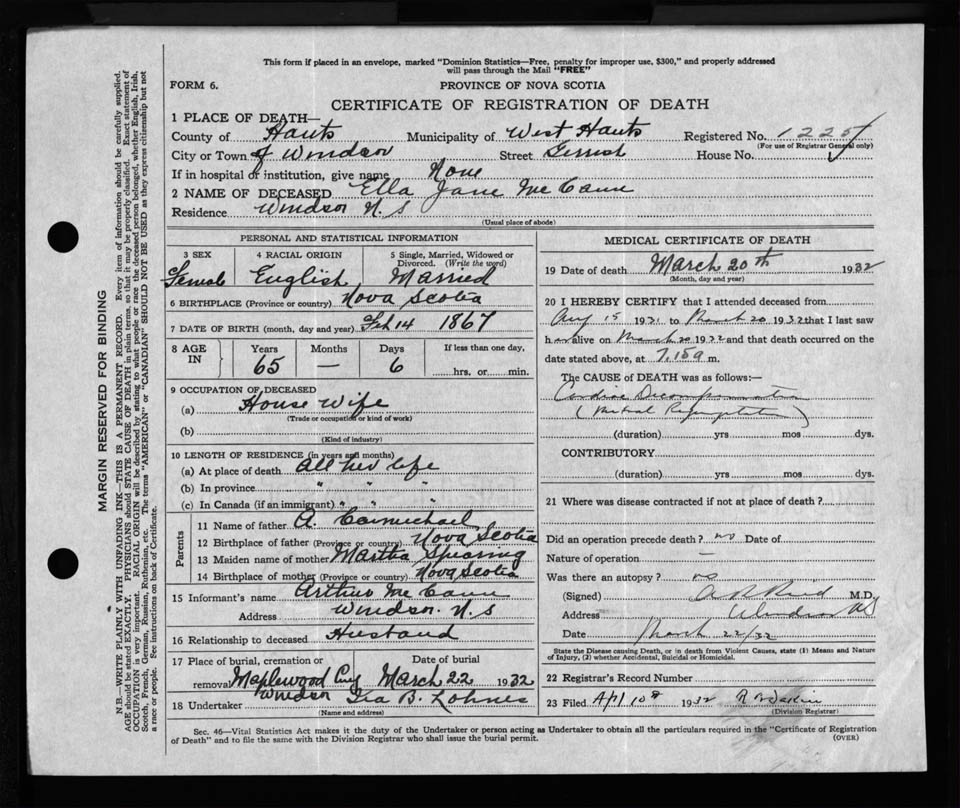 This form if placed in an envelope, marked "Dominion Statistics—Free, penalty for improper use, $300," and properly addressed
will pass through the Mail "FREE"
FORM 6.
PROVINCE OF NOVA SCOTIA
CERTIFICATE OF REGISTRATION OF DEATH
1 PLACE OF DEATH—
County of Hants Municipality of West Hants Registered No. 1225
(For use of Registrar General only)
City or Town of Windsor Street Gerrish House No.
If in hospital or institution, give name None
2 NAME OF DECEASED Ella Jane McCann
Residence Windsor N.S
(Usual place of abode)
PERSONAL AND STATISTICAL INFORMATION
3 SEX 4 RACIAL ORIGIN 5 Single, Married, Widowed or
Divorced. (Write the word)
Female English Married
6 BIRTHPLACE (Province or country) Nova Scotia
7 DATE OF BIRTH (month, day and year) Feb 14 1867
8 AGE IN Years Months Days If less than one day,
65 — 6 hrs. or min.
9 OCCUPATION OF DECEASED
(a) House Wife
(Trade or occupation or kind of work)
(b)
(Kind of industry)
10 LENGTH OF RESIDENCE (in years and months)
(a) At place of death All her life
(b) In province " " "
(c) In Canada (if an immigrant) " " "
Parents
11 Name of father A. Carmichael
12 Birthplace of father (Province or country) Nova Scotia
13 Maiden name of mother Martha Spearing
14 Birthplace of mother (Province or country) Nova Scotia
15 Informant's name Arthur McCann
Address Windsor. N.S
16 Relationship to deceased Husband
17 Place of burial, cremation or Date of burial
removal Maplewood Cmy March 22 1932
Windsor
18 Undertaker Ira B. Lohnes
(Name and address)
MEDICAL CERTIFICATE OF DEATH
19 Date of death March 20th 1932
(Month, day and year)
20 I HEREBY CERTIFY that I attended deceased from
Aug 15 1931 to March 20 1932 that I last saw
her alive on March 20 1932 and that death occurred on the
date stated above, at 7.15 a m.
The CAUSE of DEATH was as follows:—
Cardiac Decompensation
(Mitral Regurgitation)
(duration) yrs mos dys.
CONTRIBUTORY
(duration) yrs mos dys.
21 Where was disease contracted if not at place of death?
Did an operation precede death? no Date of
Nature of operation —
Was there an autopsy? no
(Signed) M.D.
Address Windsor NS
Date March 22/32
State the Disease causing Death, or in death from Violent Causes, state (1) Means and Nature
of Injury, (2) whether Accidental, Suicidal or Homicidal.
22 Registrar's Record Number
23 Filed Apl 10th 1932
(Division Registrar)
Sec. 46—Vital Statistics Act makes it the duty of the Undertaker or person acting as Undertaker to obtain all the particulars required in the "Certificate of Registration
of Death" and to file the same with the Division Registrar who shall issue the burial permit.
(OVER)
MARGIN RESERVED FOR BINDING
N.B.—WRITE PLAINLY WITH UNFADING INK—THIS IS A PERMANENT RECORD. Every item of information should be carefully supplied.
AGE should be stated EXACTLY. PHYSICIANS should STATE CAUSE OF DEATH in plain terms, so that it may be properly classified. Exact statement of
OCCUPATION is very important. RACIAL ORIGIN will be described by stating to what people or race the deceased person belonged, whether English, Irish,
Scotch, French, German, Russian, Ruthenian, etc. The terms "AMERICAN" or "CANADIAN" SHOULD NOT BE USED as they express citizenship but not
a race or people. See instructions on back of Certificate.